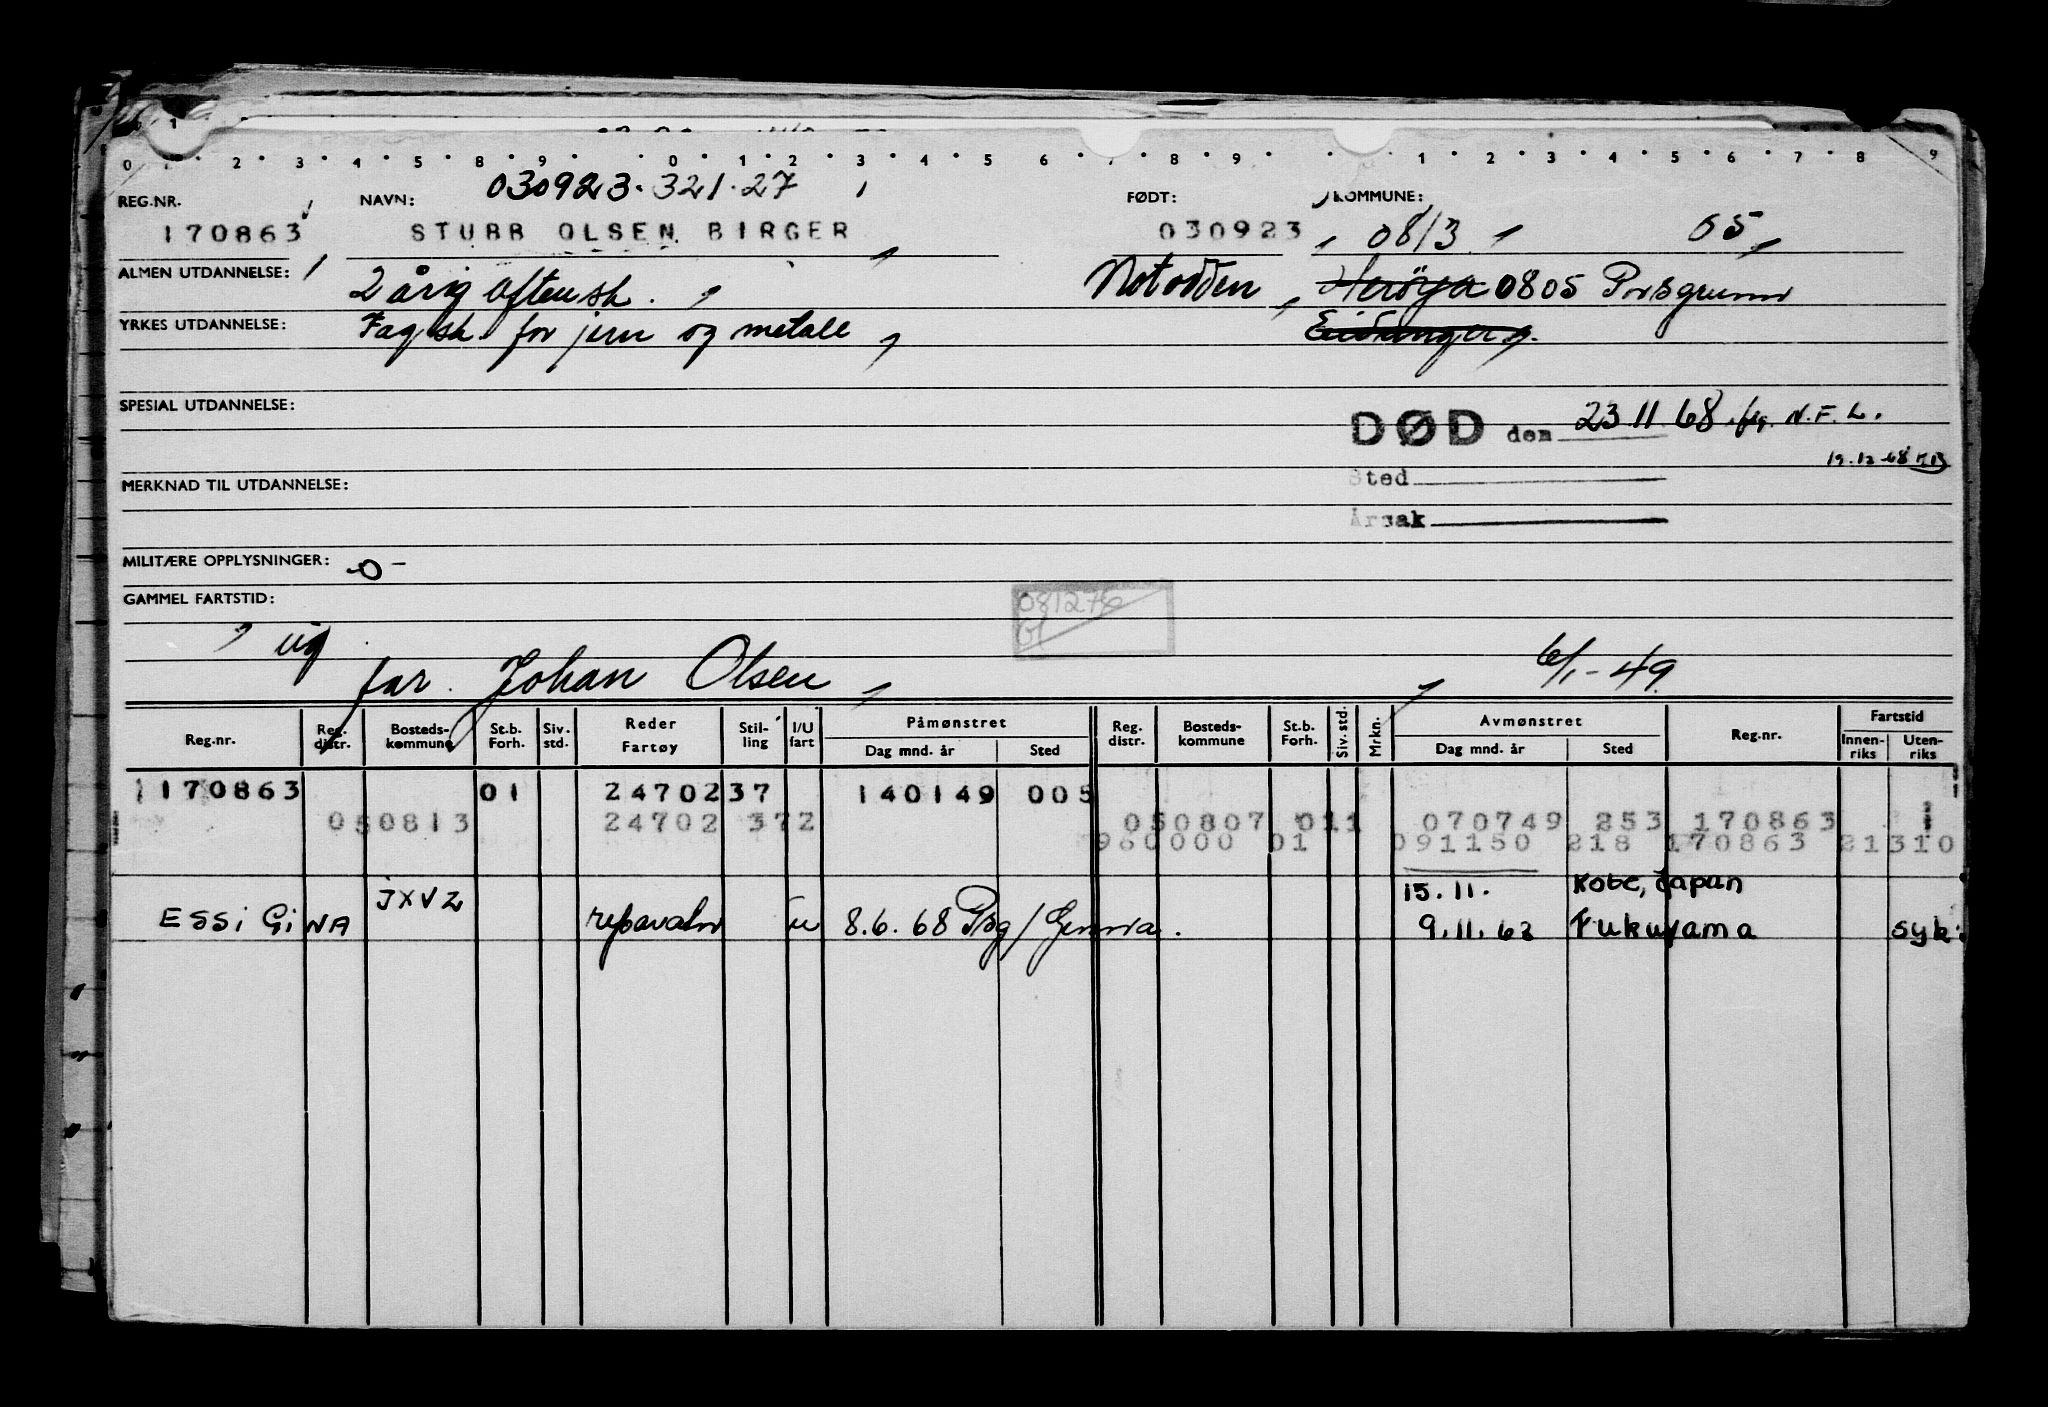 0 1 2 3 4 5 8 9 0 1 2 3 4 5 6 7 8 9 1 2 3 4 5 6 7 8 9
030923.321.27
REG.NR. NAVN: FØDT: KOMMUNE:
170863 STUBB OLSEN BIRGER 030923 0813 05
ALMEN UTDANNELSE: 2 årig aftensk. Notodden Herøya 0805 Porsgrunn
YRKES UTDANNELSE: Fagsk. for jern og metall Eidanger
SPESIAL UTDANNELSE:
DØD den 23.11.68 flg. N.F.L.
19.12.68
Sted
MERKNAD TIL UTDANNELSE:
Årsak
MILITÆRE OPPLYSNINGER: -0-
GAMMEL FARTSTID:
081276
ug
far. Johan Olsen 6/1-49
Reg.nr. Reg. distr. Bosteds-kommune St.b. Forh. Siv. std. Reder Fartøy Stil-ling I/U fart Påmønstret Dag mnd. år Sted Reg. distr. Bosteds-kommune St.b. Forh. Siv. std. Mrkn. Avmønstret Dag mnd. år Sted Reg.nr. Fartstid Innen-riks Uten-riks
170863 01 24702 37 140149 005
050813 24702 372 050807 011 070749 253 170863 1
960000 01 091150 218 170863 21310
JXVZ 15.11. Kobe, Japan
ESSi GiNA reparatør u 8.6.68 Pbg/Genova. 9.11.68 Fukuyama syk.